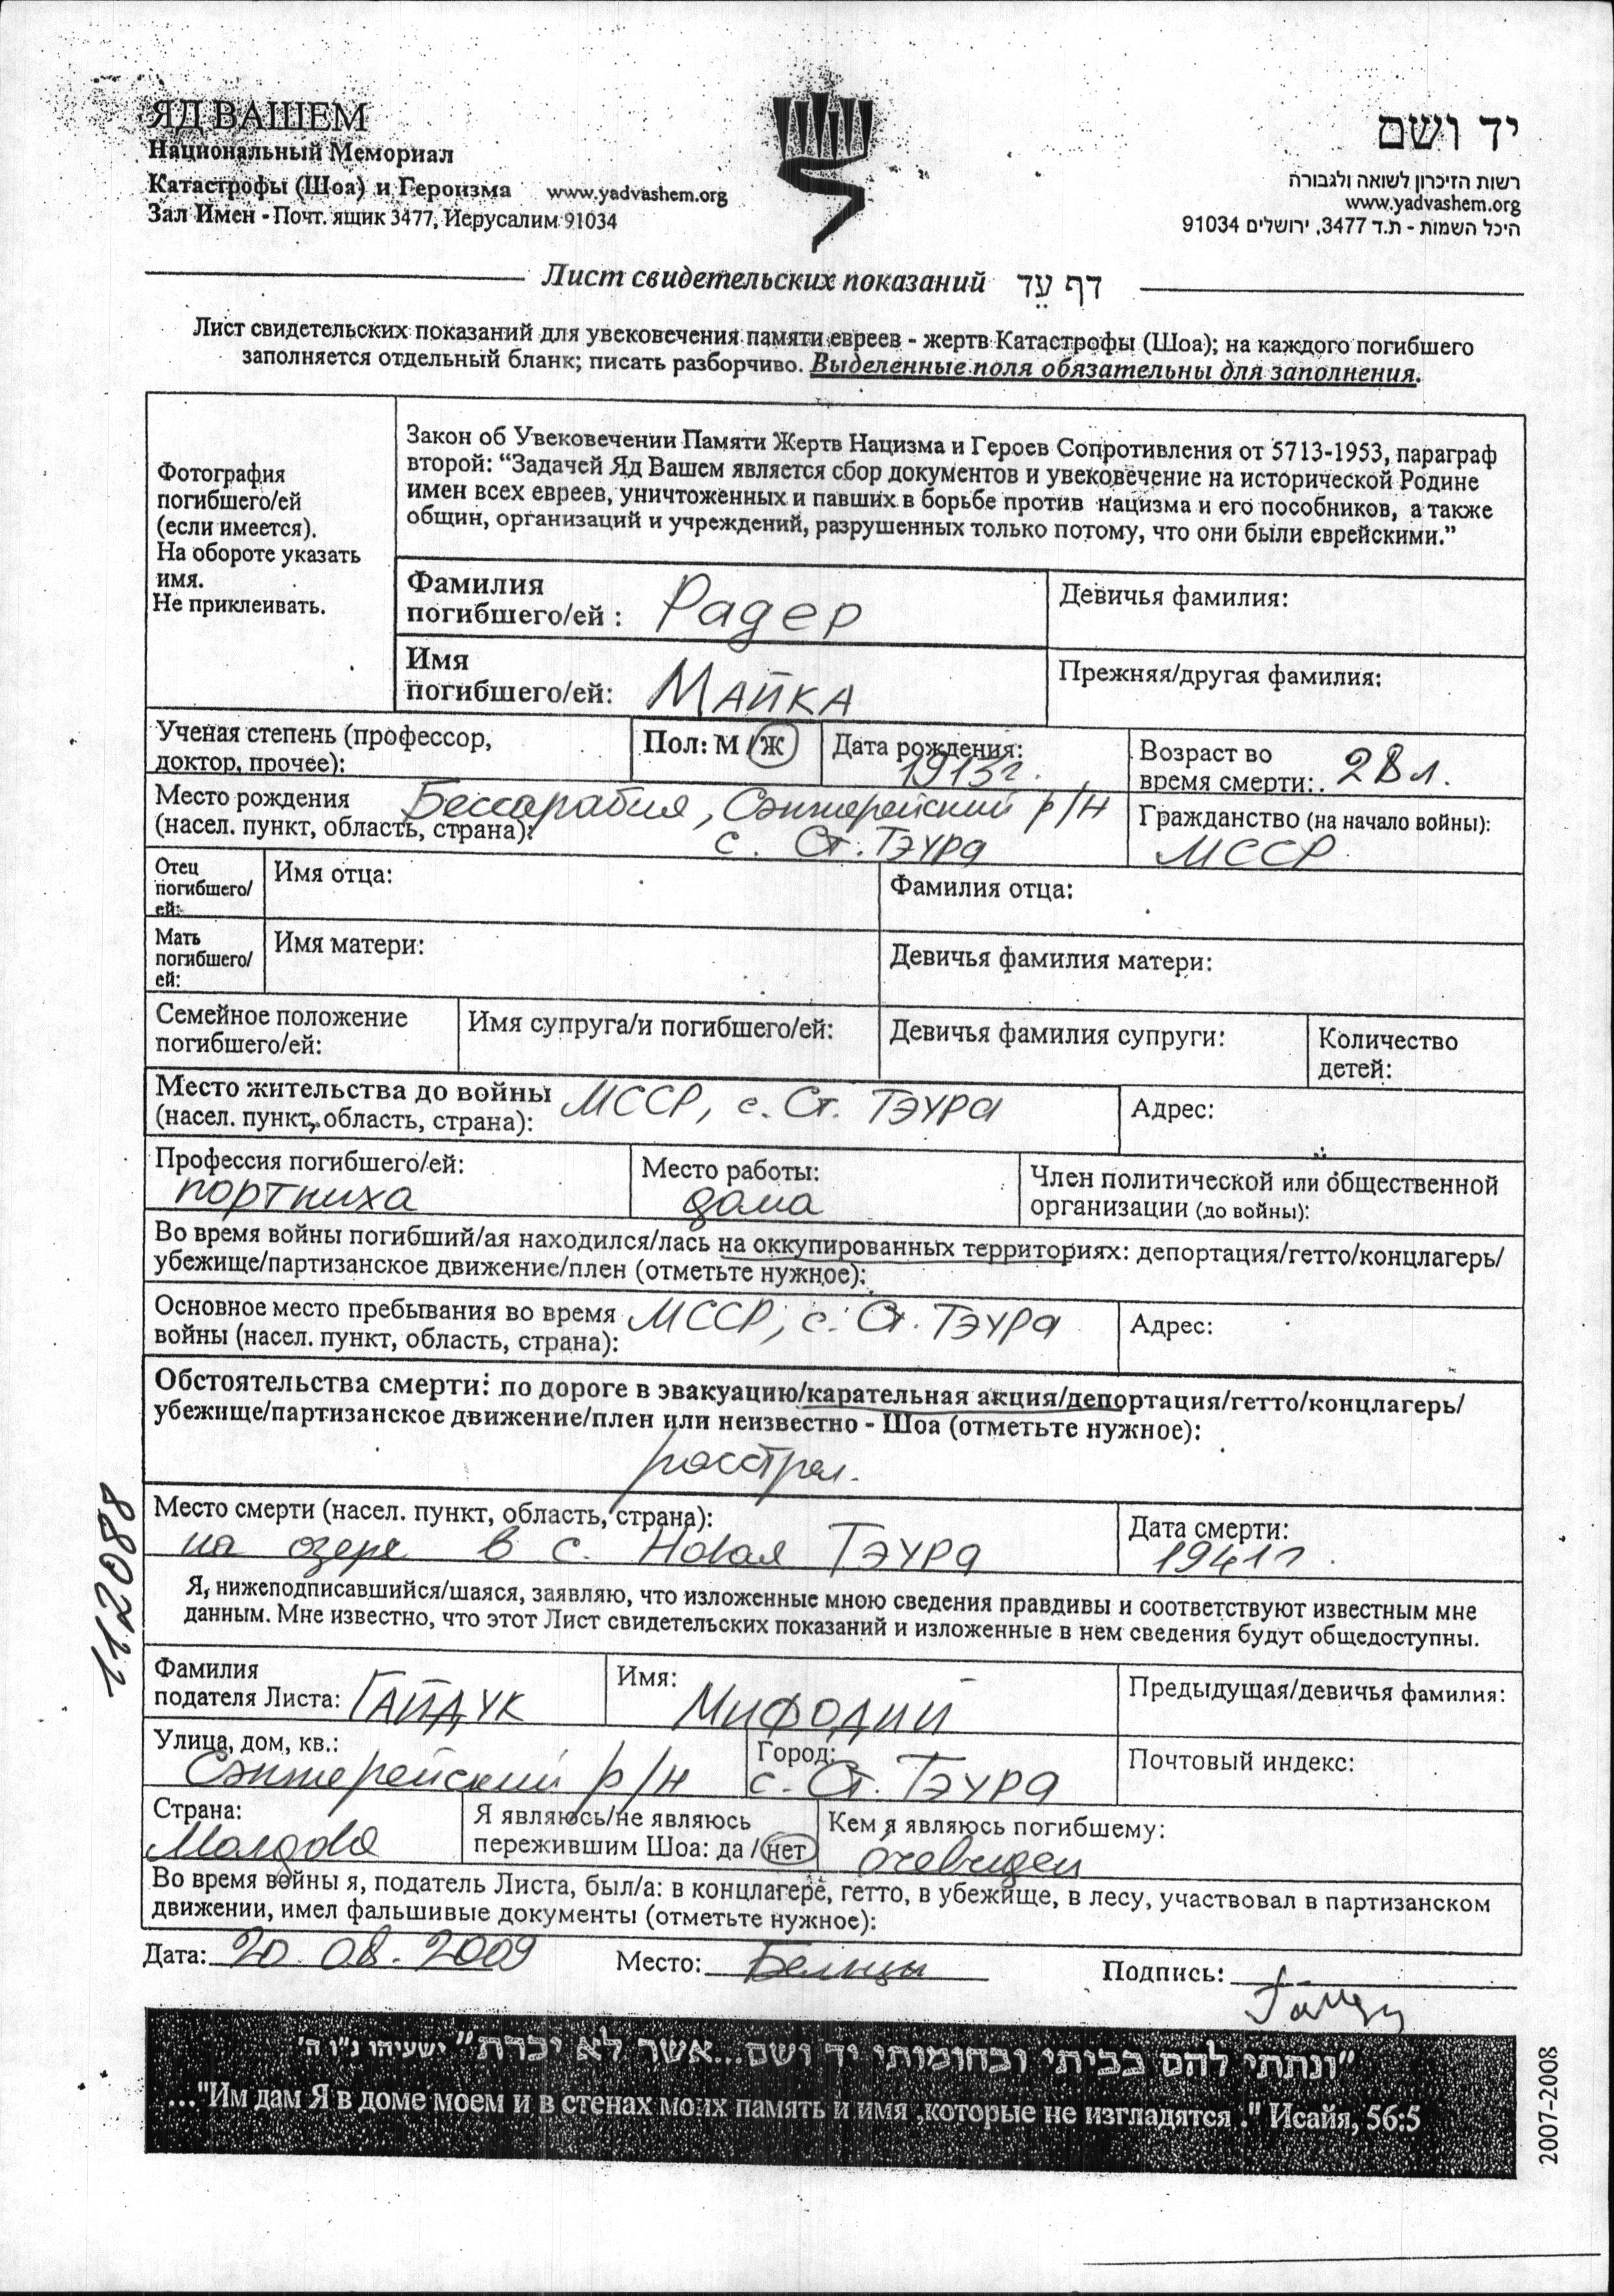 ЯД ВАШЕМ
Национальный Мемориал
Катастрофы (Шоа) и Героизма www.yadvashem.org
Зал Имен - Почт. ящик 3477, Иерусалим 91034
יד ושם
רשות הזיכרון לשואה ולגבורה
www.yadvashem.org
היכל השמות - ת.ד 3477, ירושלים 91034
Лист свидетельских показаний דף עֵד
Лист свидетельских показаний для увековечения памяти евреев - жертв Катастрофы (Шоа); на каждого погибшего
заполняется отдельный бланк; писать разборчиво. Выделенные поля обязательны для заполнения.
Фотография
погибшего/ей
(если имеется).
На обороте указать
имя.
Не приклеивать.
Закон об Увековечении Памяти Жертв Нацизма и Героев Сопротивления от 5713-1953, параграф
второй: “Задачей Яд Вашем является сбор документов и увековечение на исторической Родине
имен всех евреев, уничтоженных и павших в борьбе против нацизма и его пособников, а также
общин, организаций и учреждений, разрушенных только потому, что они были еврейскими.”
Фамилия
погибшего/ей : Радер
Девичья фамилия:
Имя
погибшего/ей: Майка
Прежняя/другая фамилия:
Ученая степень (профессор,
доктор, прочее):
Пол: М / Ж
Дата рождения:
1913г.
Возраст во
время смерти: 28 л.
Место рождения Бессарабия, Сэнжерейский р/н
(насел. пункт, область, страна): с. Ст. Тэура
Гражданство (на начало войны):
МССР
Отец
погибшего/
ей:
Имя отца:
Фамилия отца:
Мать
погибшего/
ей:
Имя матери:
Девичья фамилия матери:
Семейное положение
погибшего/ей:
Имя супруга/и погибшего/ей:
Девичья фамилия супруги:
Количество
детей:
Место жительства до войны МССР, с. Ст. Тэура
(насел. пункт, область, страна):
Адрес:
Профессия погибшего/ей:
портниха
Место работы:
дома
Член политической или общественной
организации (до войны):
Во время войны погибший/ая находился/лась на оккупированных территориях: депортация/гетто/концлагерь/
убежище/партизанское движение/плен (отметьте нужное):
Основное место пребывания во время МССР, с. Ст. Тэура
войны (насел. пункт, область, страна):
Адрес:
Обстоятельства смерти: по дороге в эвакуацию/карательная акция/депортация/гетто/концлагерь/
убежище/партизанское движение/плен или неизвестно - Шоа (отметьте нужное):
расстрел.
Место смерти (насел. пункт, область, страна):
на озере в с. Новая Тэура
Дата смерти:
1941г.
112088
Я, нижеподписавшийся/шаяся, заявляю, что изложенные мною сведения правдивы и соответствуют известным мне
данным. Мне известно, что этот Лист свидетельских показаний и изложенные в нем сведения будут общедоступны.
Фамилия
подателя Листа: Гайдук
Имя:
Мифодий
Предыдущая/девичья фамилия:
Улица, дом, кв.:
Сэнжерейский р/н
Город:
с. Ст. Тэура
Почтовый индекс:
Страна:
Молдова
Я являюсь/не являюсь
пережившим Шоа: да / нет
Кем я являюсь погибшему:
очевидец
Во время войны я, податель Листа, был/а: в концлагере, гетто, в убежище, в лесу, участвовал в партизанском
движении, имел фальшивые документы (отметьте нужное):
Дата: 20.08.2009 Место: Бельцы Подпись:
"ונתתי להם בביתי ובחומותי יד ושם...אשר לא יכרת" ישעיהו נ"ו ה'
..."Им дам Я в доме моем и в стенах моих память и имя ,которые не изгладятся ." Исайя, 56:5
2007-2008